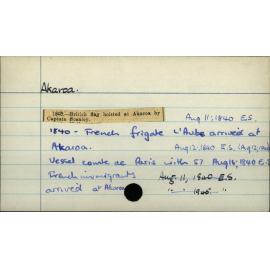 Akaroa.
1840.—British flag hoisted at Akaroa by
Captain Stanley.
Aug 11, 1840 E.S.
1840 - French frigate L'Aube arrived at
Akaroa. Aug 12, 1840 E.S. (Aug 12, 1940)
Vessel Comte de Paris with 57 Aug 14, 1840 E.S.
French immigrants Aug. 11, 1940 E.S.
arrived at Akaroa " " 1940 "